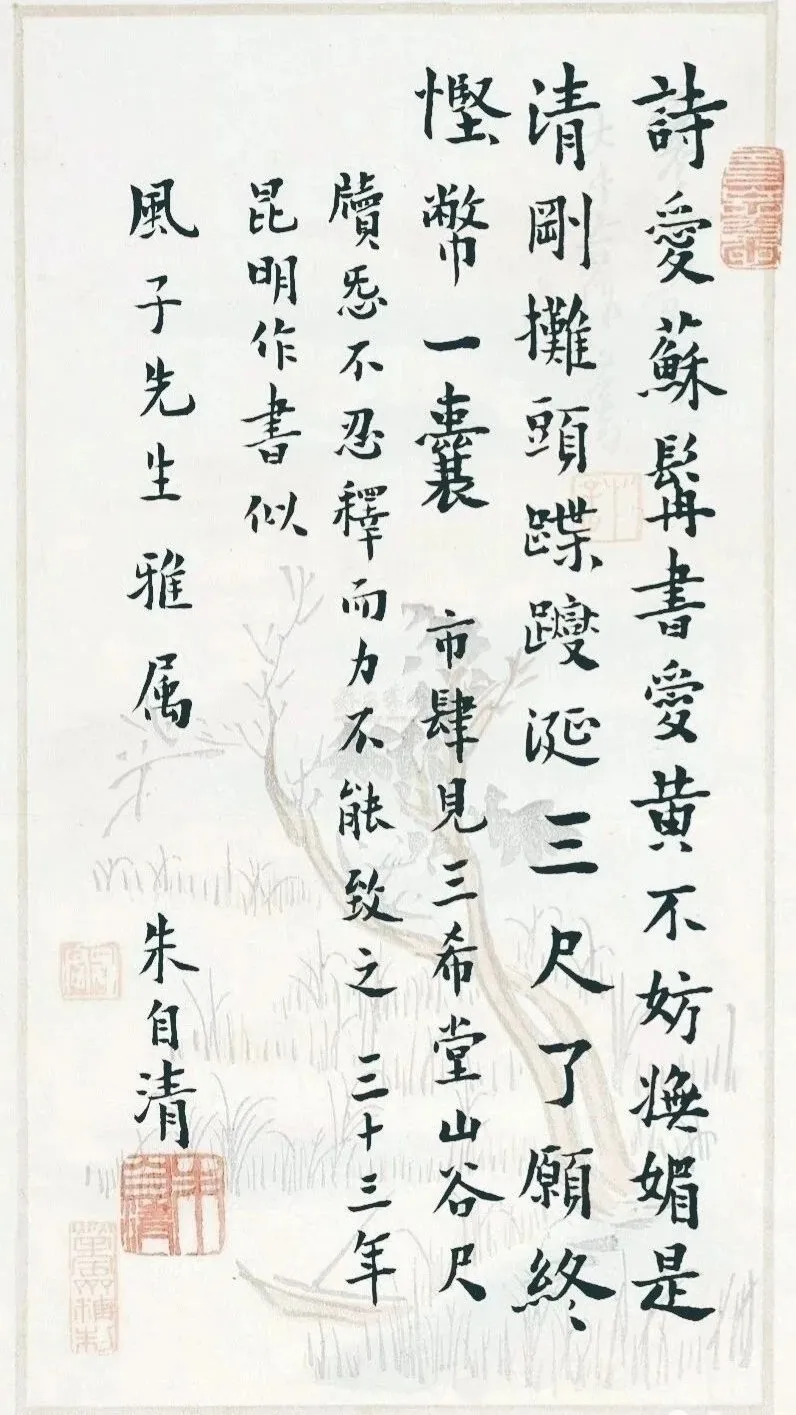 詩愛蘇髯書愛黄不妨嫵媚是
清剛攤頭蹀躞涎三尺了願終
慳幣一囊 市肆見三希堂山谷尺
牘㤅不忍釋而力不能致之 三十三年
昆明作書似
風子先生雅属 朱自清
朱自清